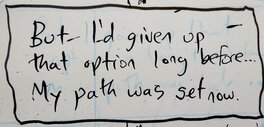 But- I'd given up -
that option long before...
My path was set now.